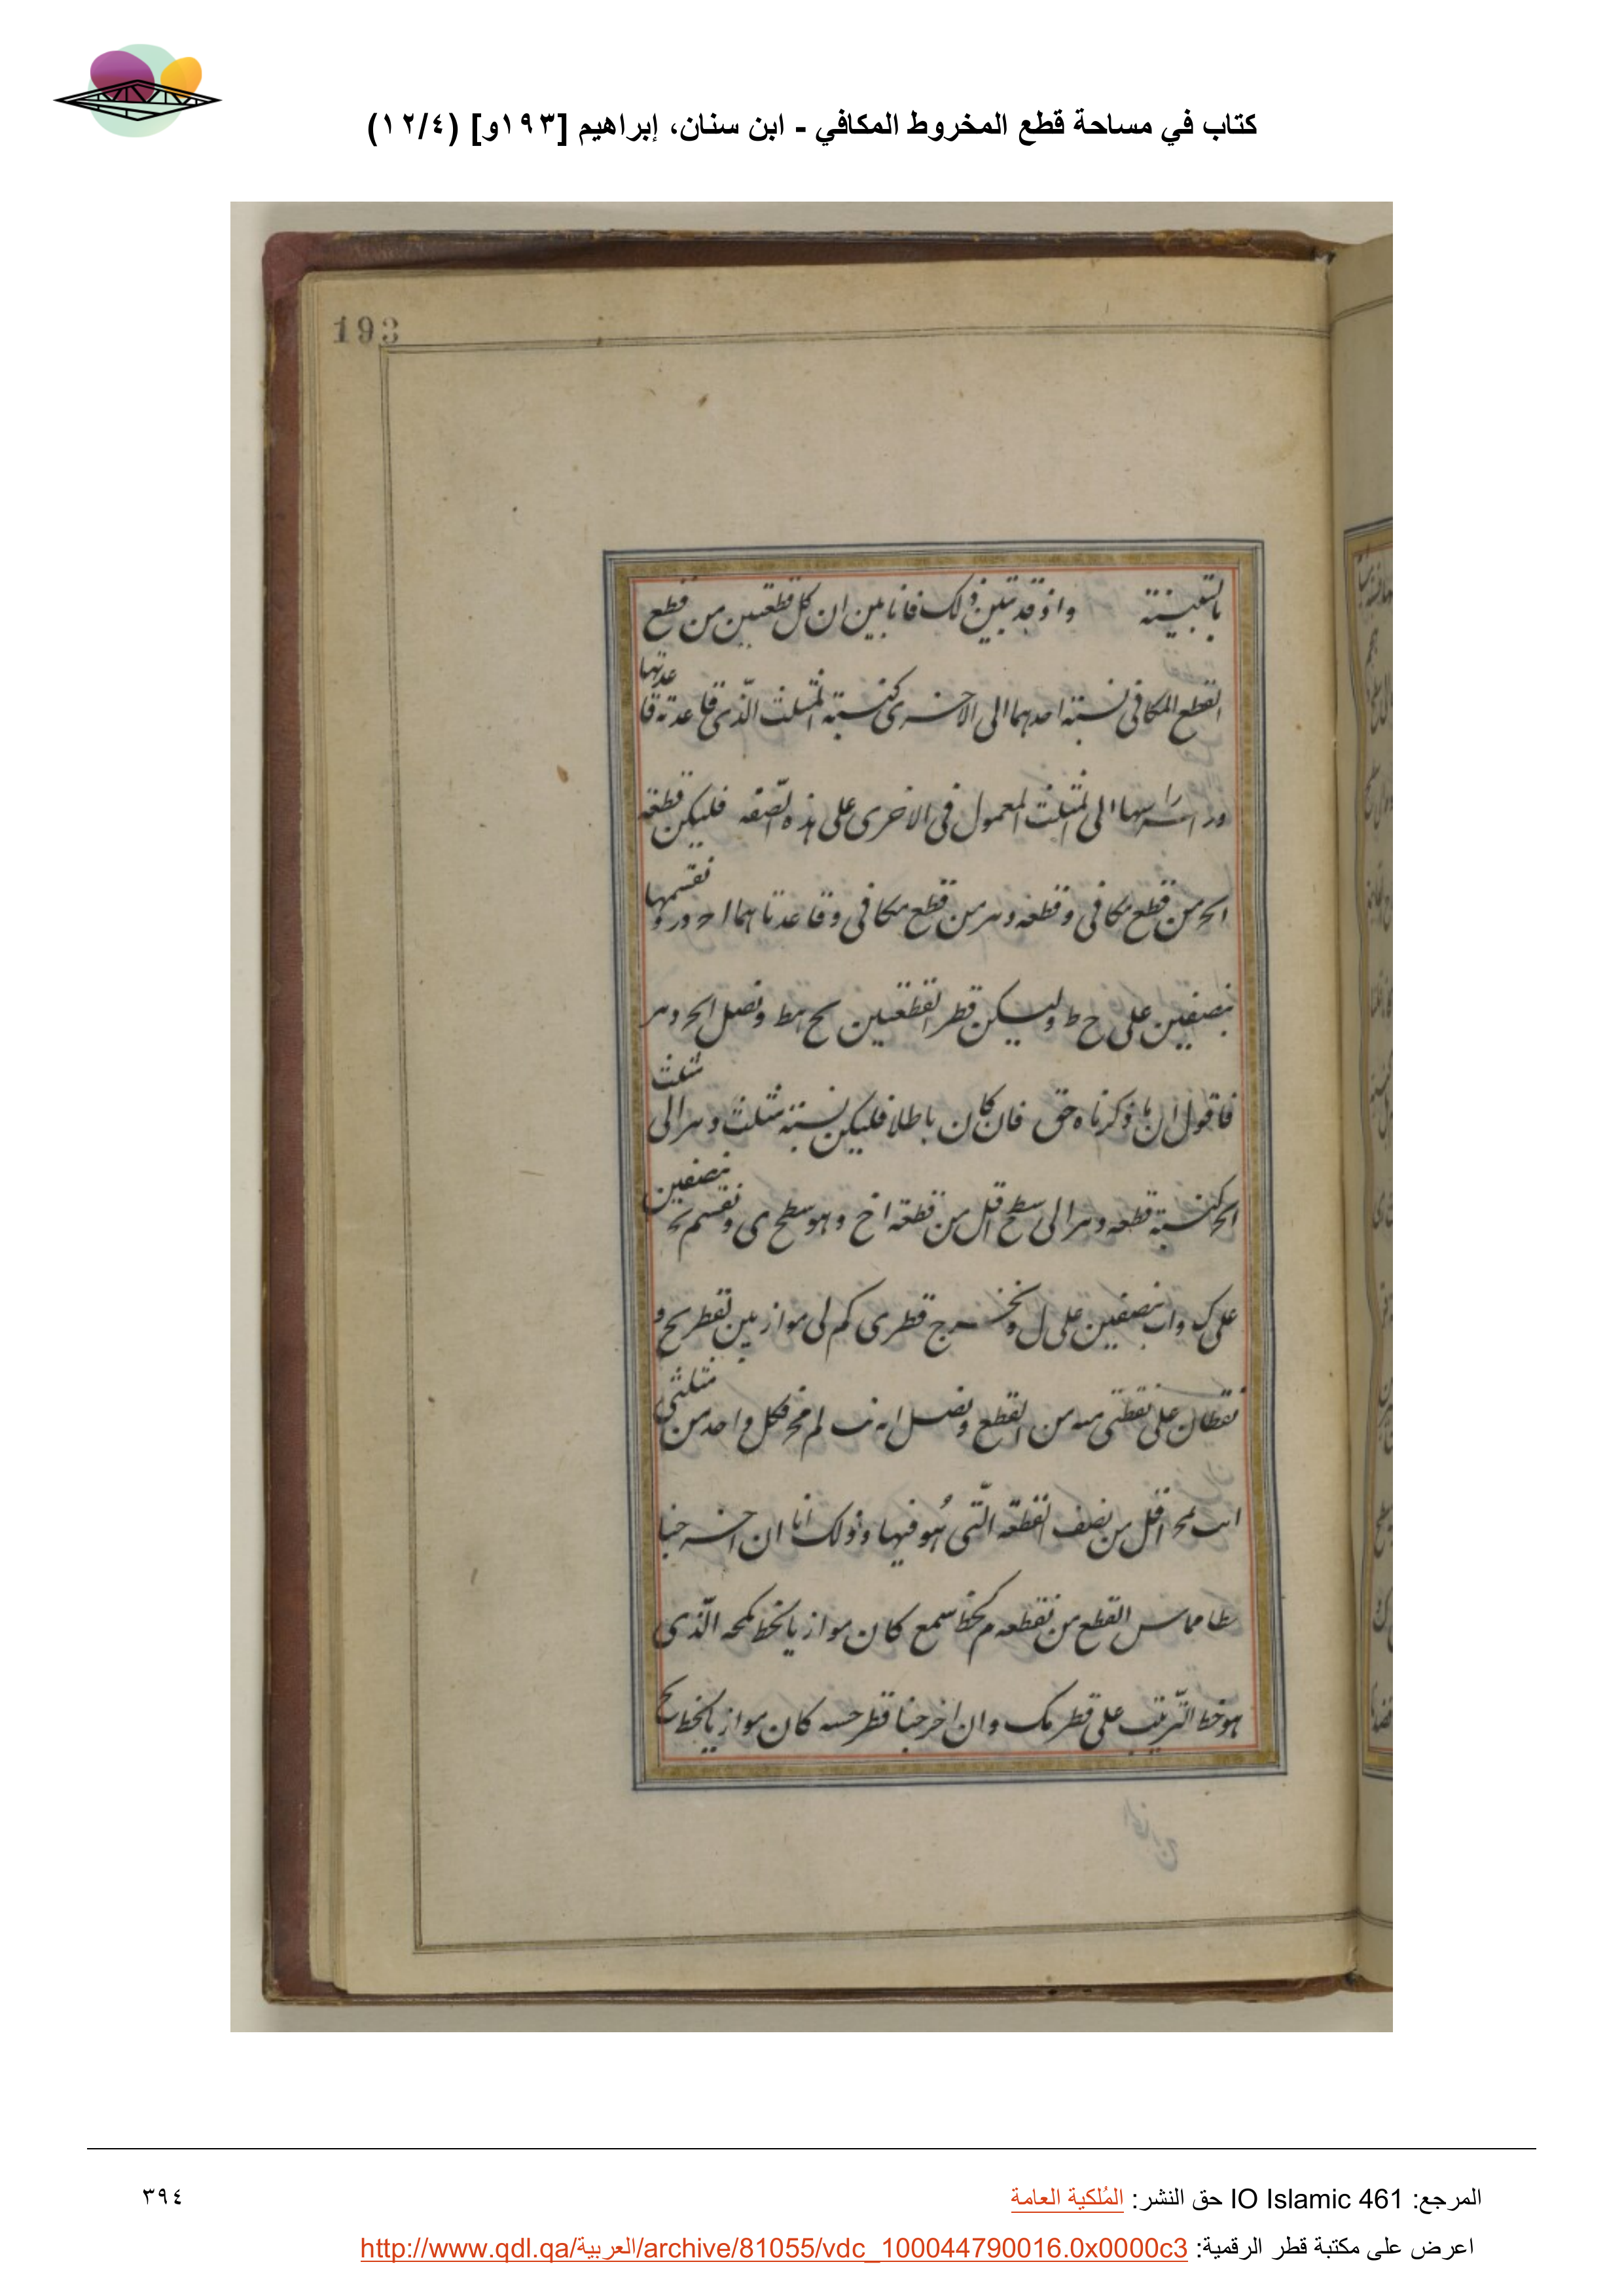 كتاب في مساحة قطع المخروط المكافي - ابن سنان، إبراهيم [١٩٣و] (١٢/٤)
193
واذ قد تبين ذلك فانا نبين ان كل قطعتين من قطع
القطع المكافى نسبة احدهما الى الاخرى كنسبة المثلث الذى قاعدته قاعدتها
وراسه راسها الى المثلث المعمول فى الاخرى على هذه الصفه فليكن قطعه
ابح من قطع مكافى وقطعه دهر من قطع مكافى وقاعدتاهما اح در ونقسمها
بنصفين على ح ط وليكن قطر القطعتين بح هط ونصل ابح دهر
فاقول ان ما ذكرناه حق فان كان باطلا فليكن نسبة مثلث دهر الى مثلث
ابح كنسبة قطعه دهر الى سطح اقل من قطعة اح وهو سطح ى ونقسم بح بنصفين
على ك واب بنصفين على ل ونخرج قطرى كم لن موازيين لقطر بح و
نقطان على نقطتى من القطع ونصل فكل واحد من مثلثى
اقل من نصف القطعه التى هو فيها وذلك انا ان اخرجنا
خطا مماس القطع من نقطه م كخط سمع كان موازيا لخط الذى
هو خط الترتيب على قطر مك وان اخرجنا قطر كان موازيا لخط بح
المرجع: IO Islamic 461 حق النشر: المُلكية العامة
٣٩٤
اعرض على مكتبة قطر الرقمية: http://www.qdl.qa/العربية/archive/81055/vdc_100044790016.0x0000c3